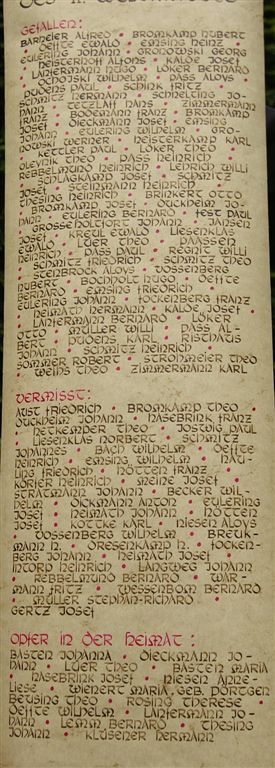 Gefallen:
Barmeier Alfred • Bromkamp Hubert
Oeffte Ewald • Emsing Heinz
Eulering Johann • Gronowski Georg
Heisterhoff Alfons • Kaloe Josef
Lantermann Hugo • Löker Bernard
Ochojski Wilhelm • Pass Aloys
Püoens Paul • Schink Fritz
Schmitz Hermann • Schnelting Jo-
hann • Tetzlaff Hans • Zimmermann
Franz • Booemann Franz • Bromkamp
Josef • Dieckmann Josef • Emsing
Johann • Eulering Wilhelm • Gro-
nowski Werner • Heisterkamp Karl
Kettler Paul • Löker Theo
Oleynik Theo • Pass Heinrich
Rebbelmund Heinrich • Lehrich Willi
Schlagkamp Josef • Schmitz
Josef • Steinmann Heinrich
Thesing Heinrich • Brinkert Otto
Bromkamp Josef • Dückheim Jo-
hann • Eulering Bernard • Fest Paul
Grosseholtfort Johann • Jansen
Josef • Kreul Ewald • Liesenklas
Ewald • Lüer Theo • Paassen
Heinrich • Pass Paul • Regnit Willi
Schmitz Friedrich • Schmitz Theo
Stenbrock Aloys • Vossenberg
Hubert • Bocholt Hugo • Oeffte
Bernard • Emsing Friedrich
Eulering Johann • Fockenberg Franz
Heimath Hermann • Kaloe Josef
Lantermann Bernard • Löker
Otto • Müller Willi • Pass Al-
bert • Püoens Karl • Risthaus
Johann • Schmitz Heinrich
Sommer Robert • Strohmeier Theo
Weihs Theo • Zimmermann Karl
Vermisst:
Aust Friedrich • Bromkamp Theo
Dückheim Johann • Hasebrink Franz
Hetkemper Theo • Joswig Paul
Liesenklas Norbert • Schmitz
Johannes • Bach Wilhelm • Oeffte
Heinrich • Emsing Wilhelm • Hau-
ling Friedrich • Hötten Franz
Körfer Heinrich • Meine Josef
Stratmann Johann • Becker Wil-
helm • Dickmann Anton • Eulering
Josef • Heimath Johann • Hötten
Josef • Kottke Karl • Niesen Aloys
Vossenberg Wilhelm • Breuk-
mann H. • Dresenkamp H. • Focken-
berg Johann • Heimath Josef
Intorp Heinrich • Langweg Johann
Rebbelmund Bernard • War-
mann Fritz • Wessenbom Bernard
Müller Stephan-Richard
Gertz Josef
Opfer in der Heimat:
Basten Johanna • Dieckmann Jo-
hann • Lüer Theo • Basten Maria
Hasebrink Josef • Niesen Anne-
liese • Wienert Maria, geb. Dörtgen
Beusing Theo • Rosing Therese
Oeffte Wilhelm • Lantermann Jo-
hann • Lemm Bernard • Thesing
Johann • Klüsener Hermann